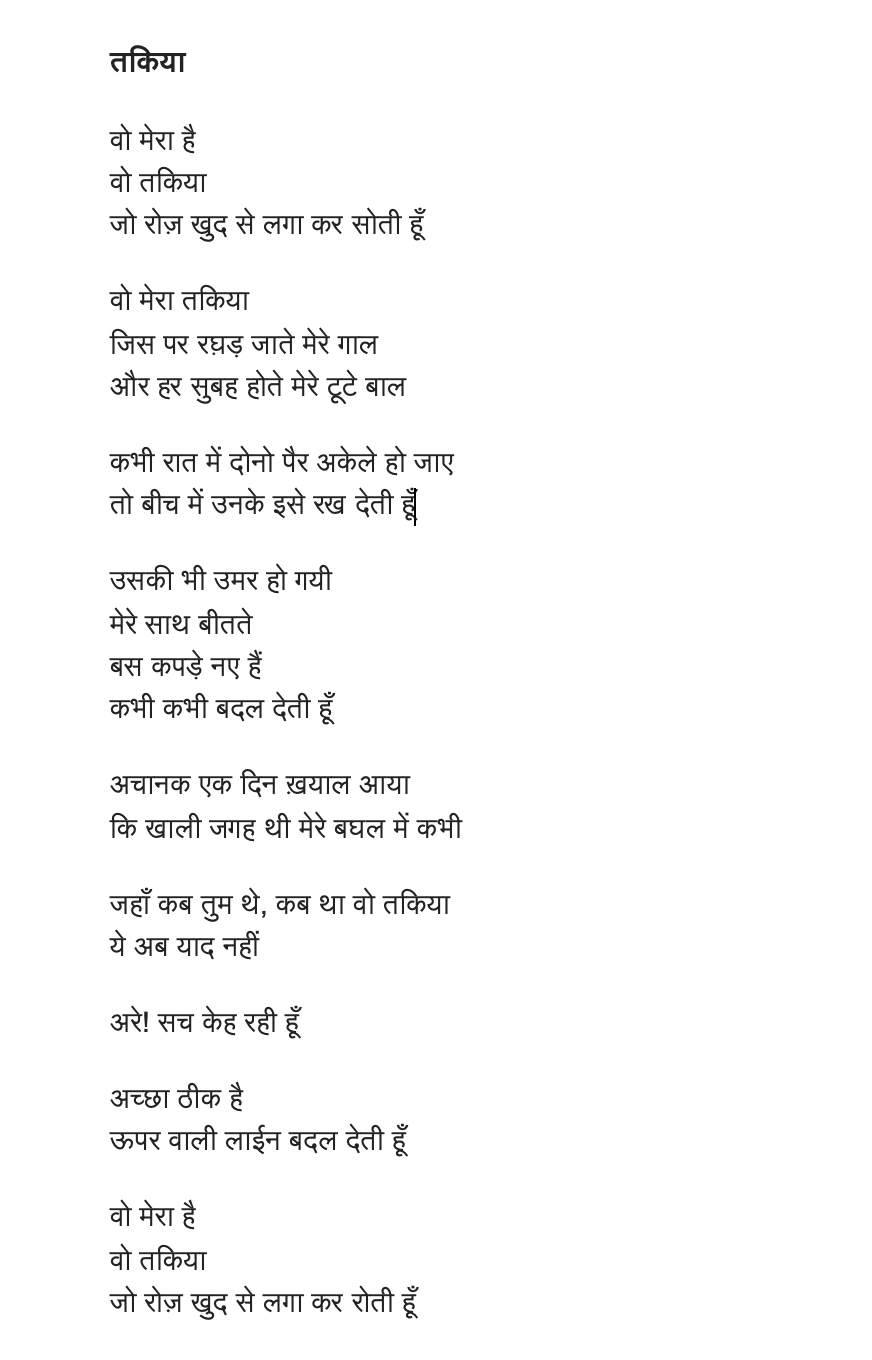 तकिया
वो मेरा है
वो तकिया
जो रोज़ खुद से लगा कर सोती हूँ
वो मेरा तकिया
जिस पर रघ़ड़ जाते मेरे गाल
और हर सुबह होते मेरे टूटे बाल
कभी रात में दोनो पैर अकेले हो जाए
तो बीच में उनके इसे रख देती हूँ
उसकी भी उमर हो गयी
मेरे साथ बीतते
बस कपड़े नए हैं
कभी कभी बदल देती हूँ
अचानक एक दिन ख़याल आया
कि खाली जगह थी मेरे बघल में कभी
जहाँ कब तुम थे, कब था वो तकिया
ये अब याद नहीं
अरे! सच केह रही हूँ
अच्छा ठीक है
ऊपर वाली लाईन बदल देती हूँ
वो मेरा है
वो तकिया
जो रोज़ खुद से लगा कर रोती हूँ